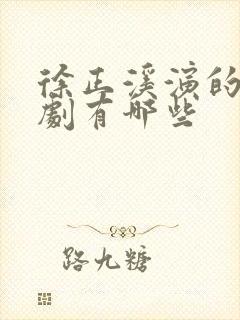 徐正溪演的
劇有哪些
路九糖